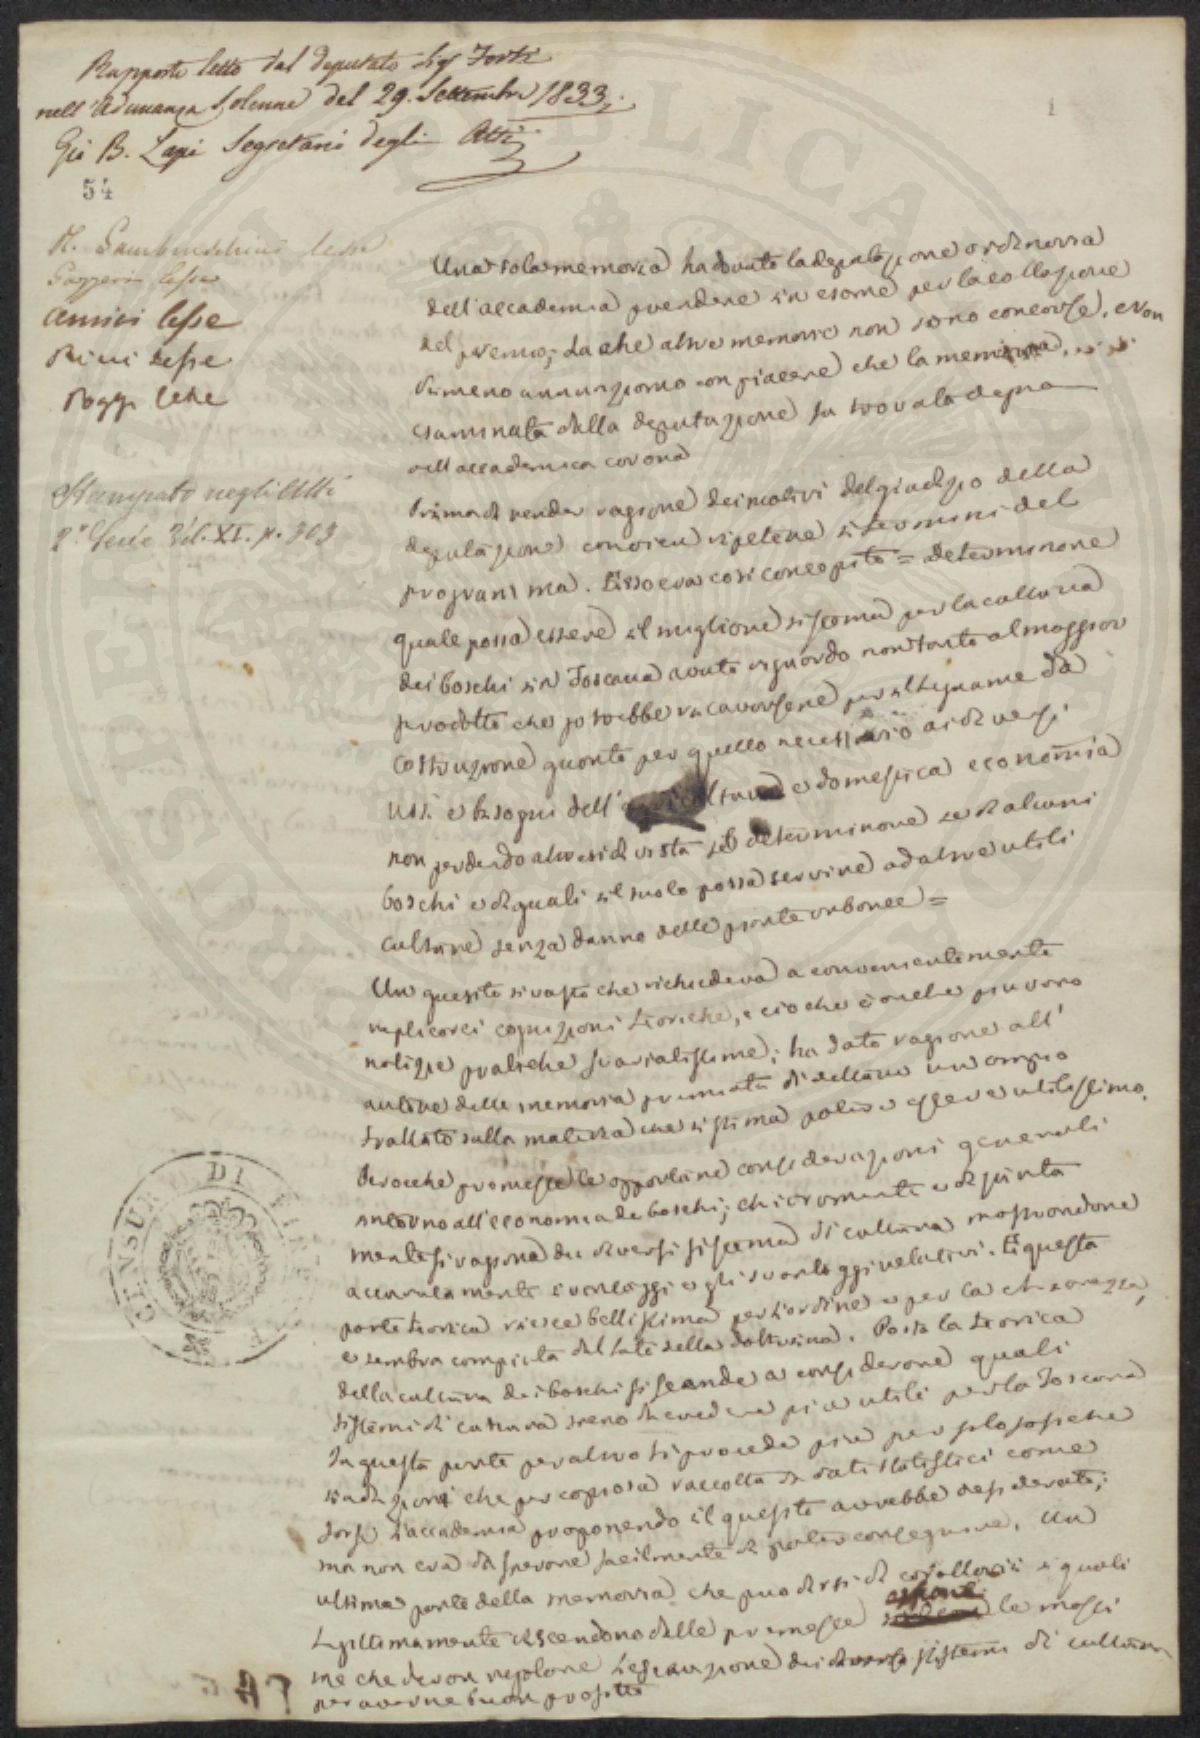 Rapporto letto dal deputato Sigr Forti
nell'Adunanza Solenne del 29. Settembre 1833.
Gio B. Lapi Segretario degli Atti
1
54
R. Lambruschini lesse
Gazzeri lesse
Amici lesse
Ricci lesse
Poggi lesse
Stampato negli Atti
Vol. XI. p. 303
Una sola memoria ha dovuto la deputazione ordinaria
dell'accademia prendere in esame per la collazione
del premio; da che altre memorie non sono concorse. Non
dimeno annunziamo con piacere che la memoria
esaminata dalla deputazione fu trovata degna
dell'accademica corona
Prima di render ragione dei motivi del giudizio della
deputazione convien ripetere i termini del
programma. Esso era così concepito = determinare
quale possa essere il migliore sistema per la cultura
dei boschi in Toscana avuto riguardo non tanto al maggior
prodotto che potrebbe ricavarsene per il legname da
costruzione quanto per quello necessario ai diversi
usi e bisogni dell' agricoltura e domestica economia
non perdendo altresì di vista di determinare se di alcuni
boschi e di quali il suolo possa servire ad altre utili
culture senza danno delle piante arboree =
Un quesito sì vasto che richiedeva a convenientemente
replicarci cognizioni teoriche, e ciò che è anche più raro
notizie pratiche svariatissime; ha dato ragione all'
autore della memoria premiata di dettare un ampio
trattato sulla materia che si stima potere essere utilissimo.
Perocchè premesse le opportune considerazioni generali
intorno all'economia de boschi; chiaramente e distinta
mente si ragiona dei diversi sistemi di cultura mostrandone
accuratamente i vantaggi e gli svantaggi relativi. E questa
parte teorica riesce bellissima per l'ordine e per la chiarezza,
e sembra compiuta dal lato della dottrina. Posta la teorica
della cultura dei boschi si scende a considerare quali
sistemi di cultura sieno da credere più utili per la Toscana
In questa parte peraltro si procede più per filosofiche
induzioni che per copiosa raccolta di dati statistici come
forse l'accademia proponendo il quesito avrebbe desiderato;
ma non era da sperare facilmente di poter conseguire. Un
ultima parte della memoria che può dirsi di corollarii i quali
legittimamente discendono dalle premesse espone le massi
me che devon regolare l'esecuzione dei diversi sistemi di cultura
per averne buon profitto
CENSURA DI FIRENZE